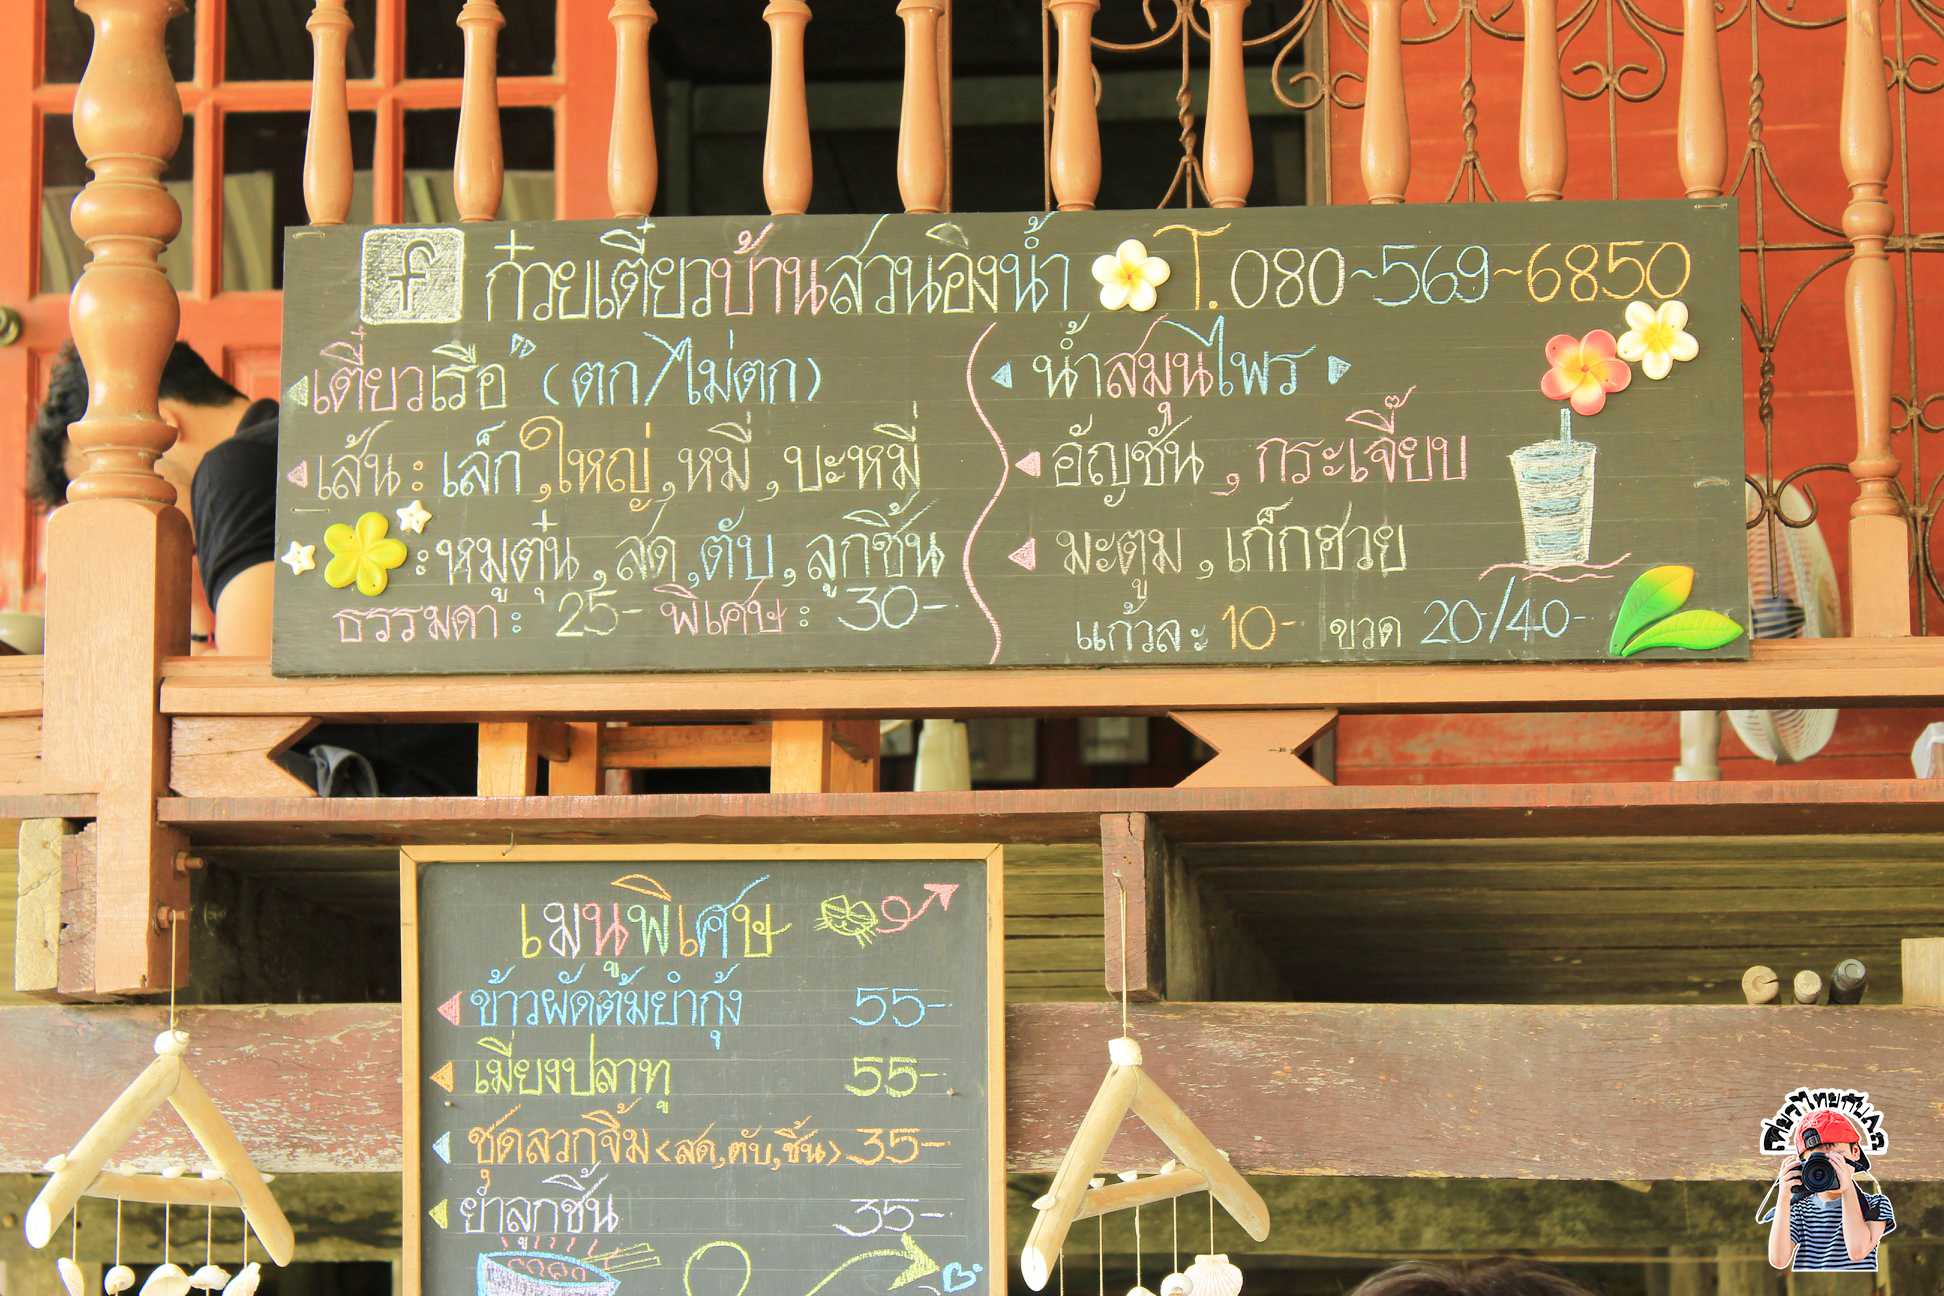 f ก๋วยเตี๋ยวบ้านสวนอิงน้ำ T. 080-569-6850
เตี๋ยวเรือ" (ตก/ไม่ตก)
เส้น : เล็ก, ใหญ่, หมี่, บะหมี่
: หมูตุ๋น, สด, ตับ, ลูกชิ้น
ธรรมดา : 25- พิเศษ : 30-
น้ำสมุนไพร
อัญชัน, กระเจี๊ยบ
มะตูม, เก็กฮวย
แก้วละ 10- ขวด 20-/40-
เมนูพิเศษ
ข้าวผัดต้มยำกุ้ง 55-
เมี่ยงปลาทู 55-
ชุดลวกจิ้ม <สด,ตับ,ชิ้น> 35-
ยำลูกชิ้น 35-
เที่ยวไทยกับภค